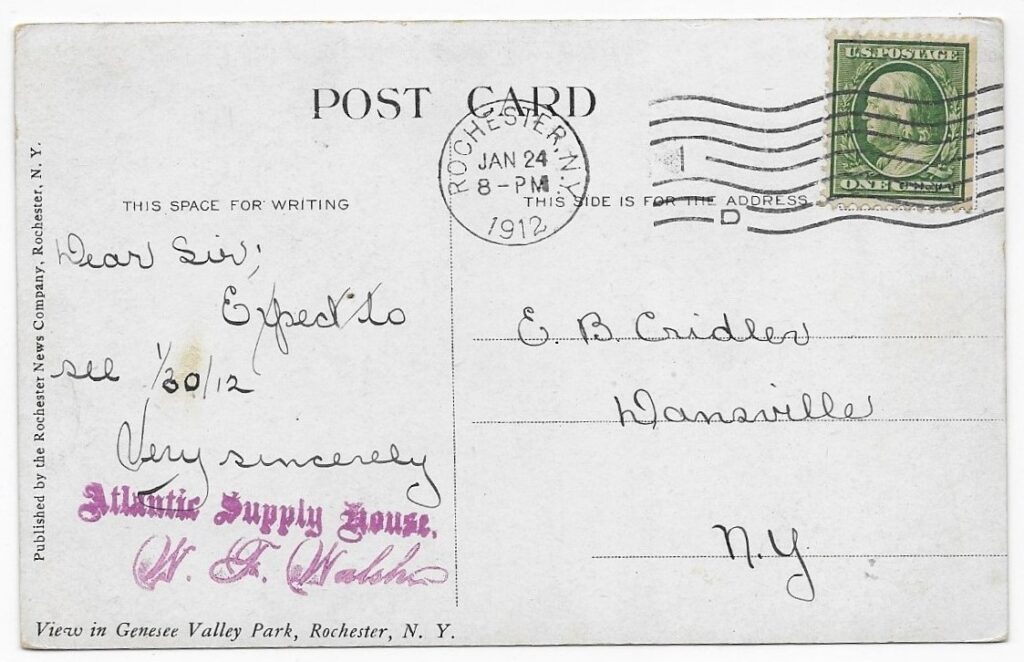 U.S. POSTAGE
ONE CENT
POST CARD
ROCHESTER, N.Y.
JAN 24
8-PM
1912
D
THIS SPACE FOR WRITING
THIS SIDE IS FOR THE ADDRESS
Dear Sir;
Expect to
see 1/30/12
Very sincerely
Atlantic Supply House.
W. F. Walsh
E. B. Cridler
Dansville
N.Y
Published by the Rochester News Company, Rochester, N. Y.
View in Genesee Valley Park, Rochester, N. Y.